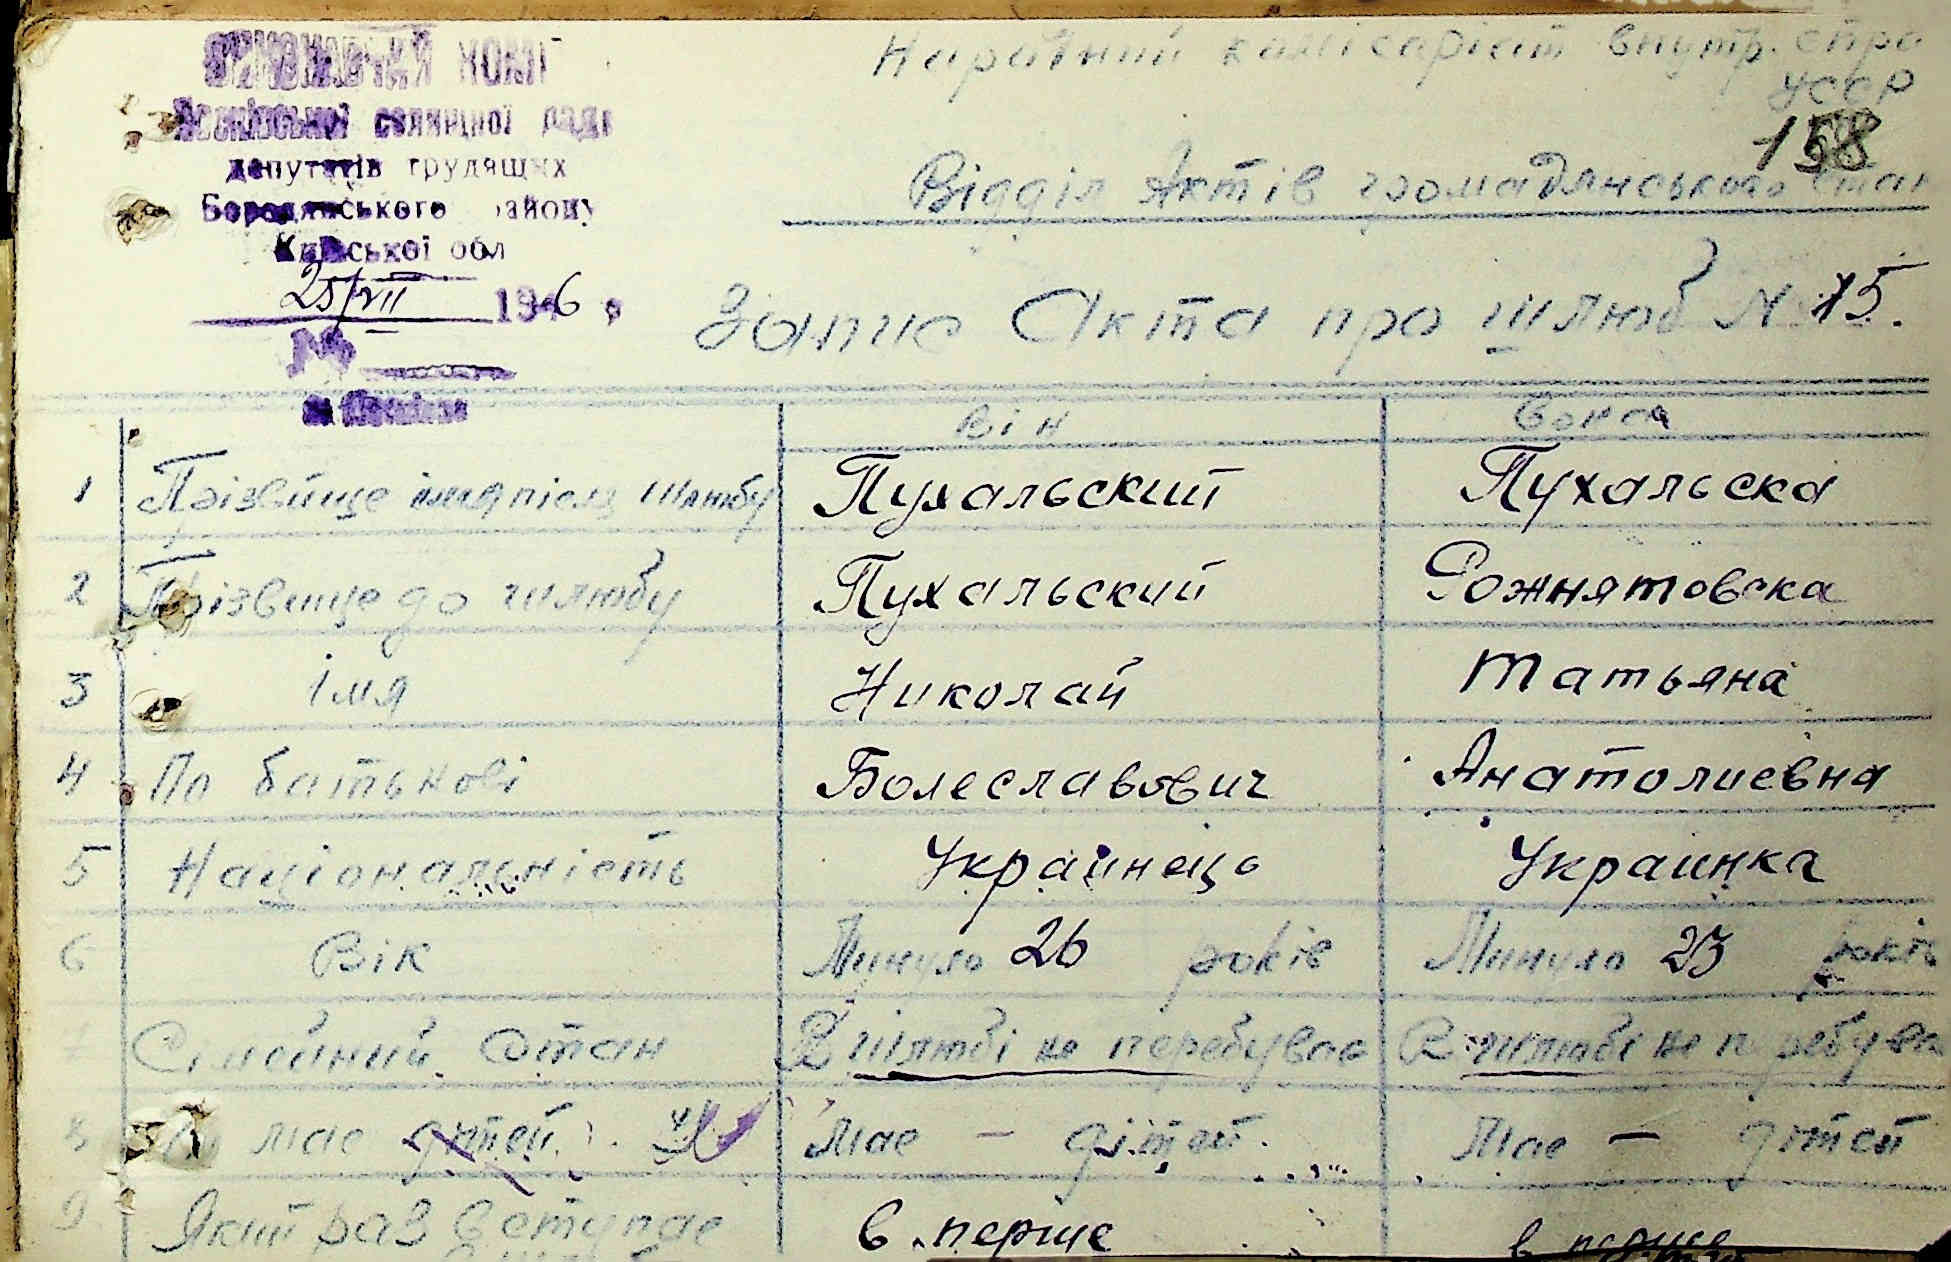 Народний комісаріат внутр. спра
УССР
158
Відділ Актів громадянського стан
ВИКОН КОМ
селищної ради
депутатів трудящих
Бородянського району
Київської обл
25/VII 1946 р
№
Запис Акта про шлюб № 15.
він вона
1 Прізвище імя після шлюбу Пухальский Пухальска
2 Прізвище до шлюбу Пухальский Рожнятовска
3 Імя Николай Татьяна
4 По батькові Болеславович Анатолиевна
5 Національність Украинець Украинка
6 Вік Минуло 26 років Минуло 23 років
7 Сімейний Стан В шлюбі не перебував В шлюбі не перебува
8 має дітей має — дітей. має — дітей
9 Який раз вступає в перше в перше